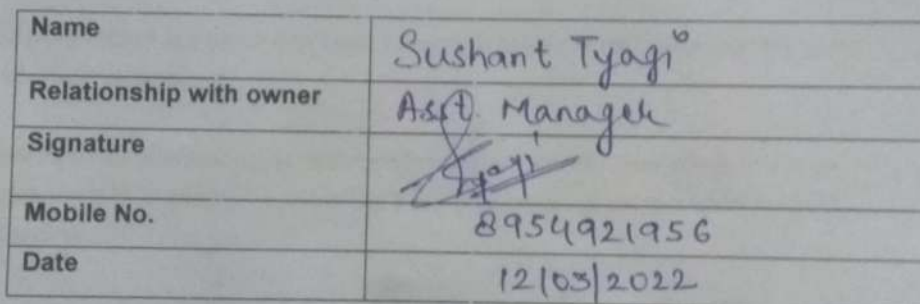 Name Sushant Tyagi
Relationship with owner Asst. Manager
Signature Tyagi
Mobile No. 8954921956
Date 12/03/2022